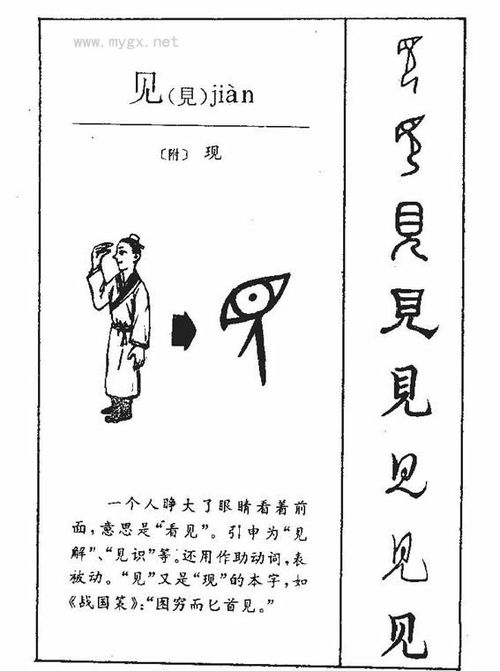 www.mygx.net
见(見)jiàn
〔附〕现
一个人睁大了眼睛看着前
面,意思是“看见”。引申为“见
解”、“见识”等。还用作助动词,表
被动。“见”又是“现”的本字,如
《战国策》:“图穷而匕首见。”
見
見
見
见
见
见